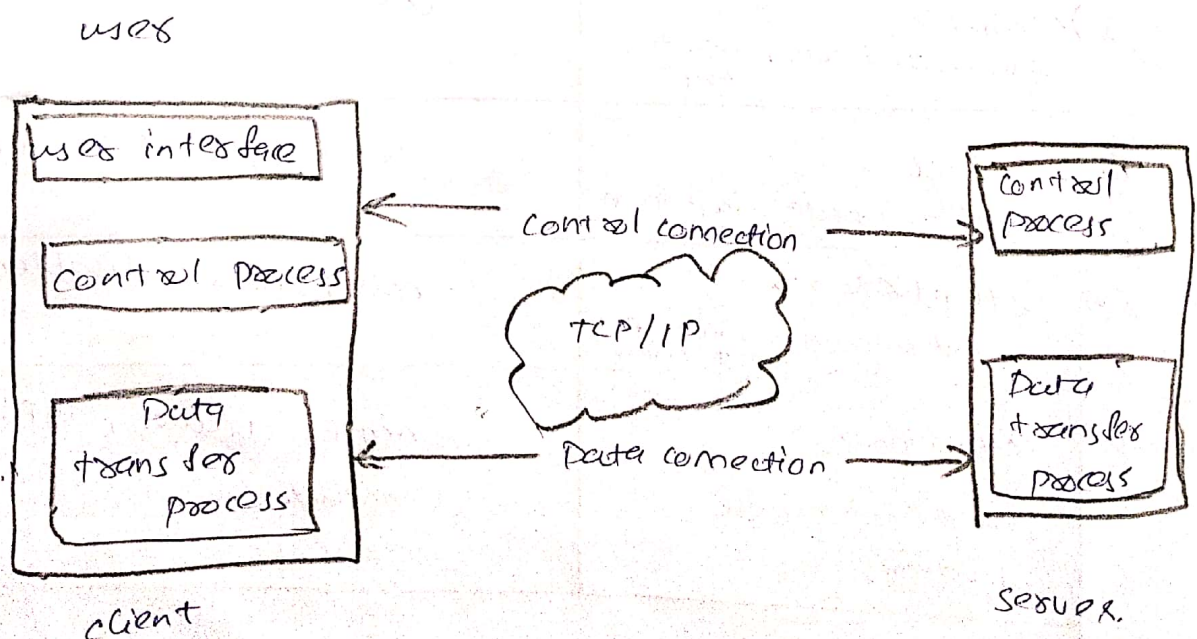 user
user interface
control process
Data
transfer
process
client
control connection
TCP/IP
Data connection
control
process
Data
transfer
process
server.